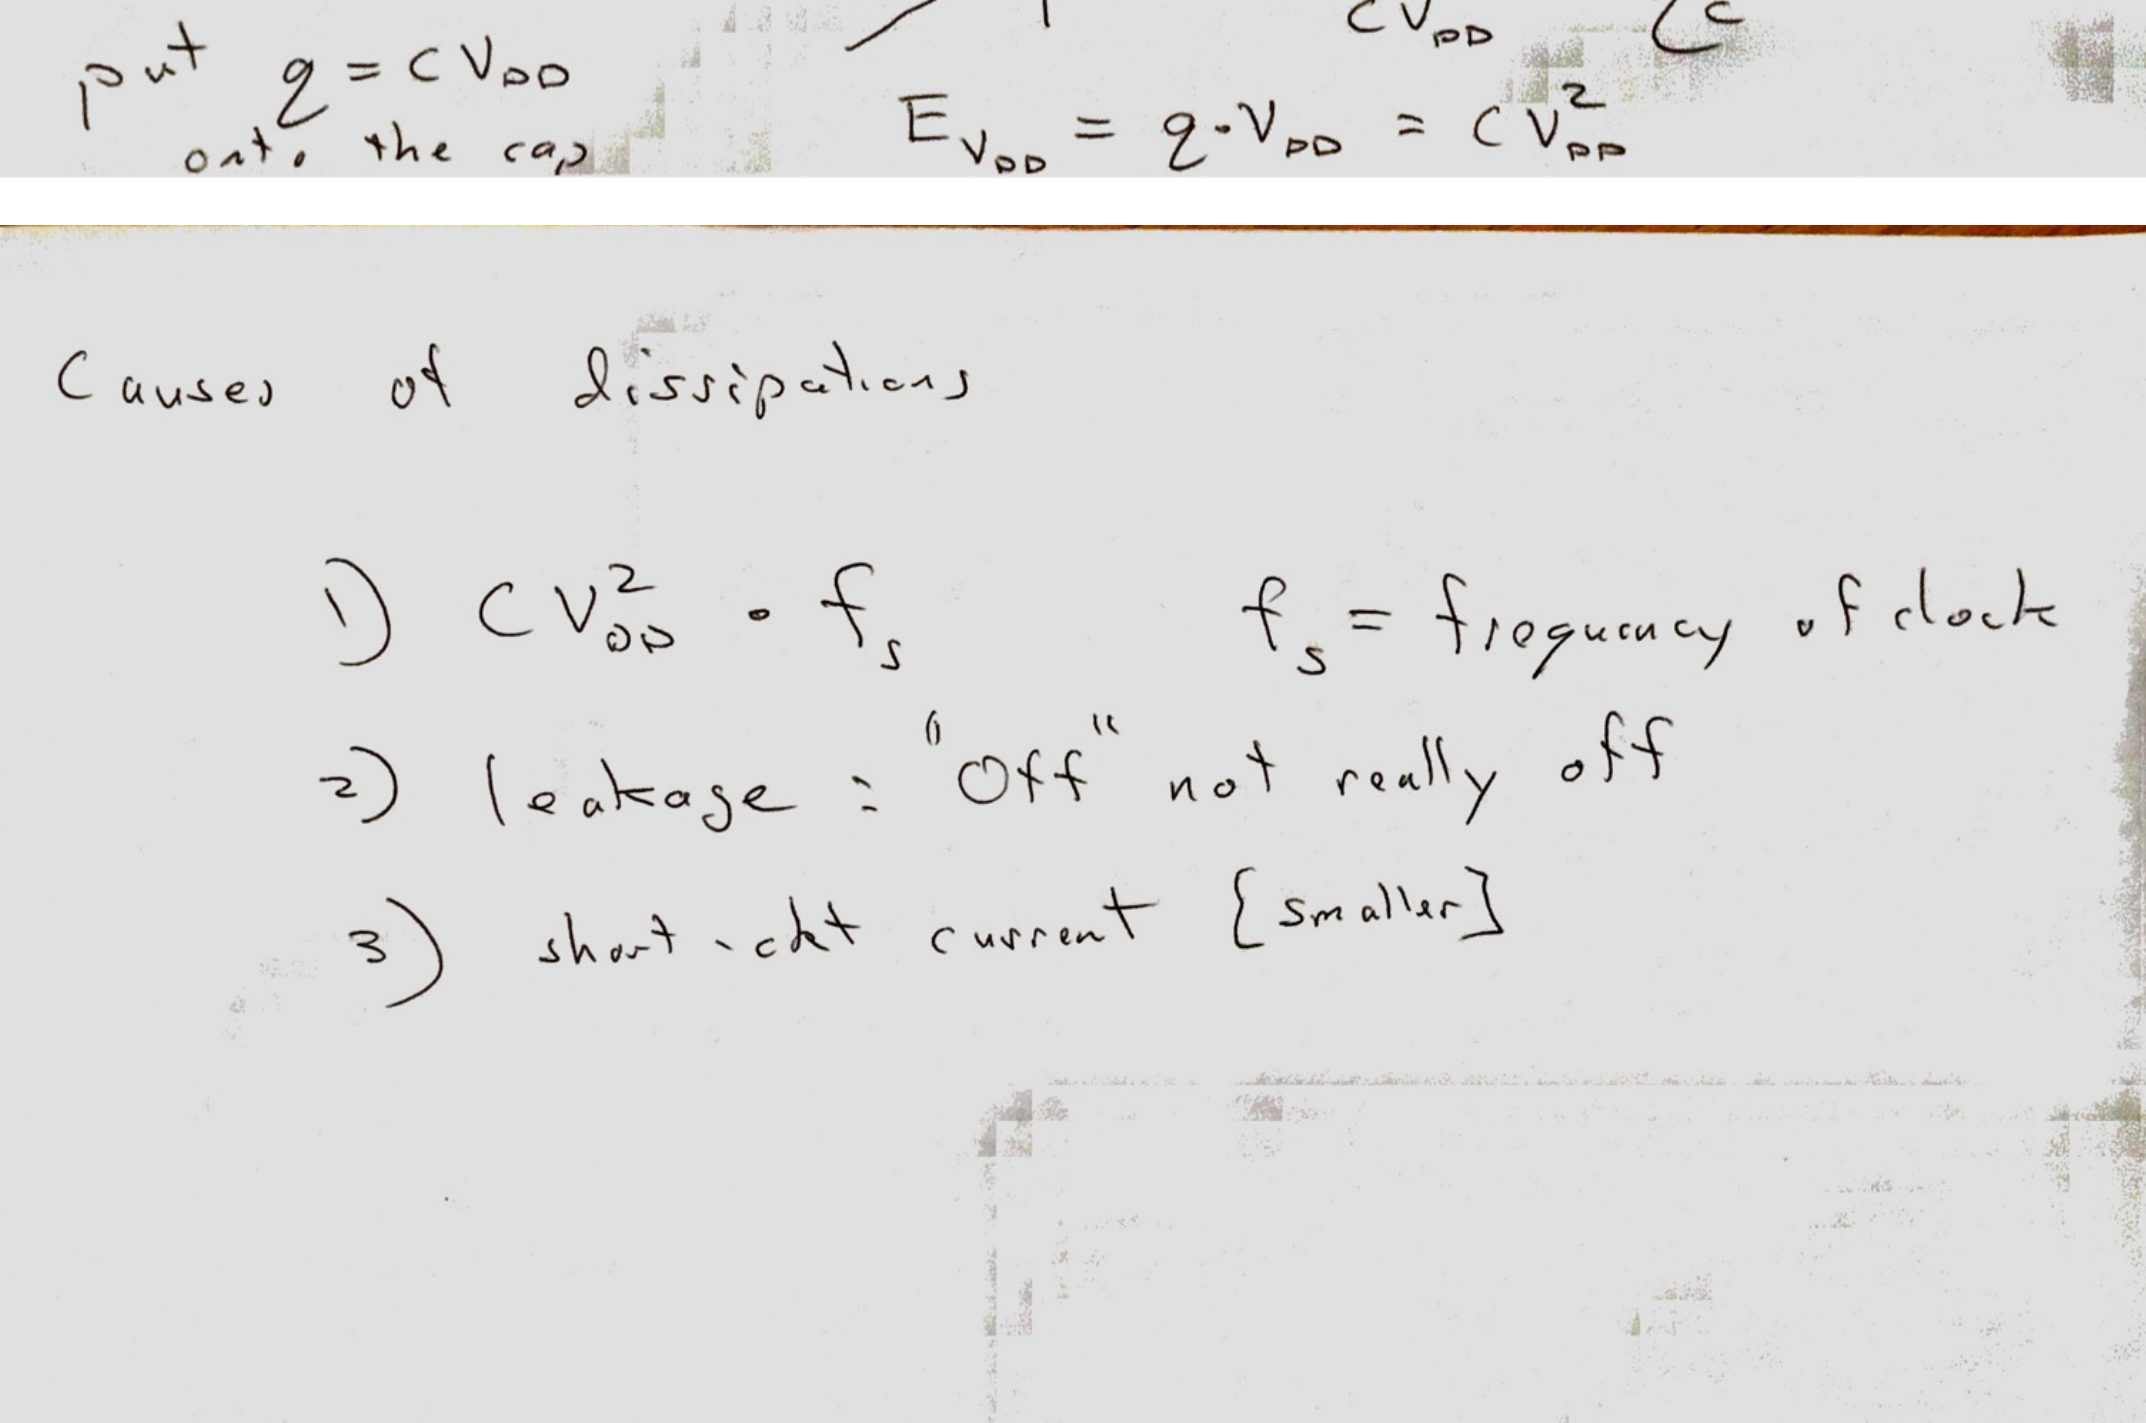 CV_DD
put q = CV_DD
E_V_DD = q·V_DD = CV_DD^2
onto the cap
Causes of dissipations
1) CV_DD^2 · f_s    f_s = frequency of clock
2) leakage : "Off" not really off
3) short-ckt current [smaller]